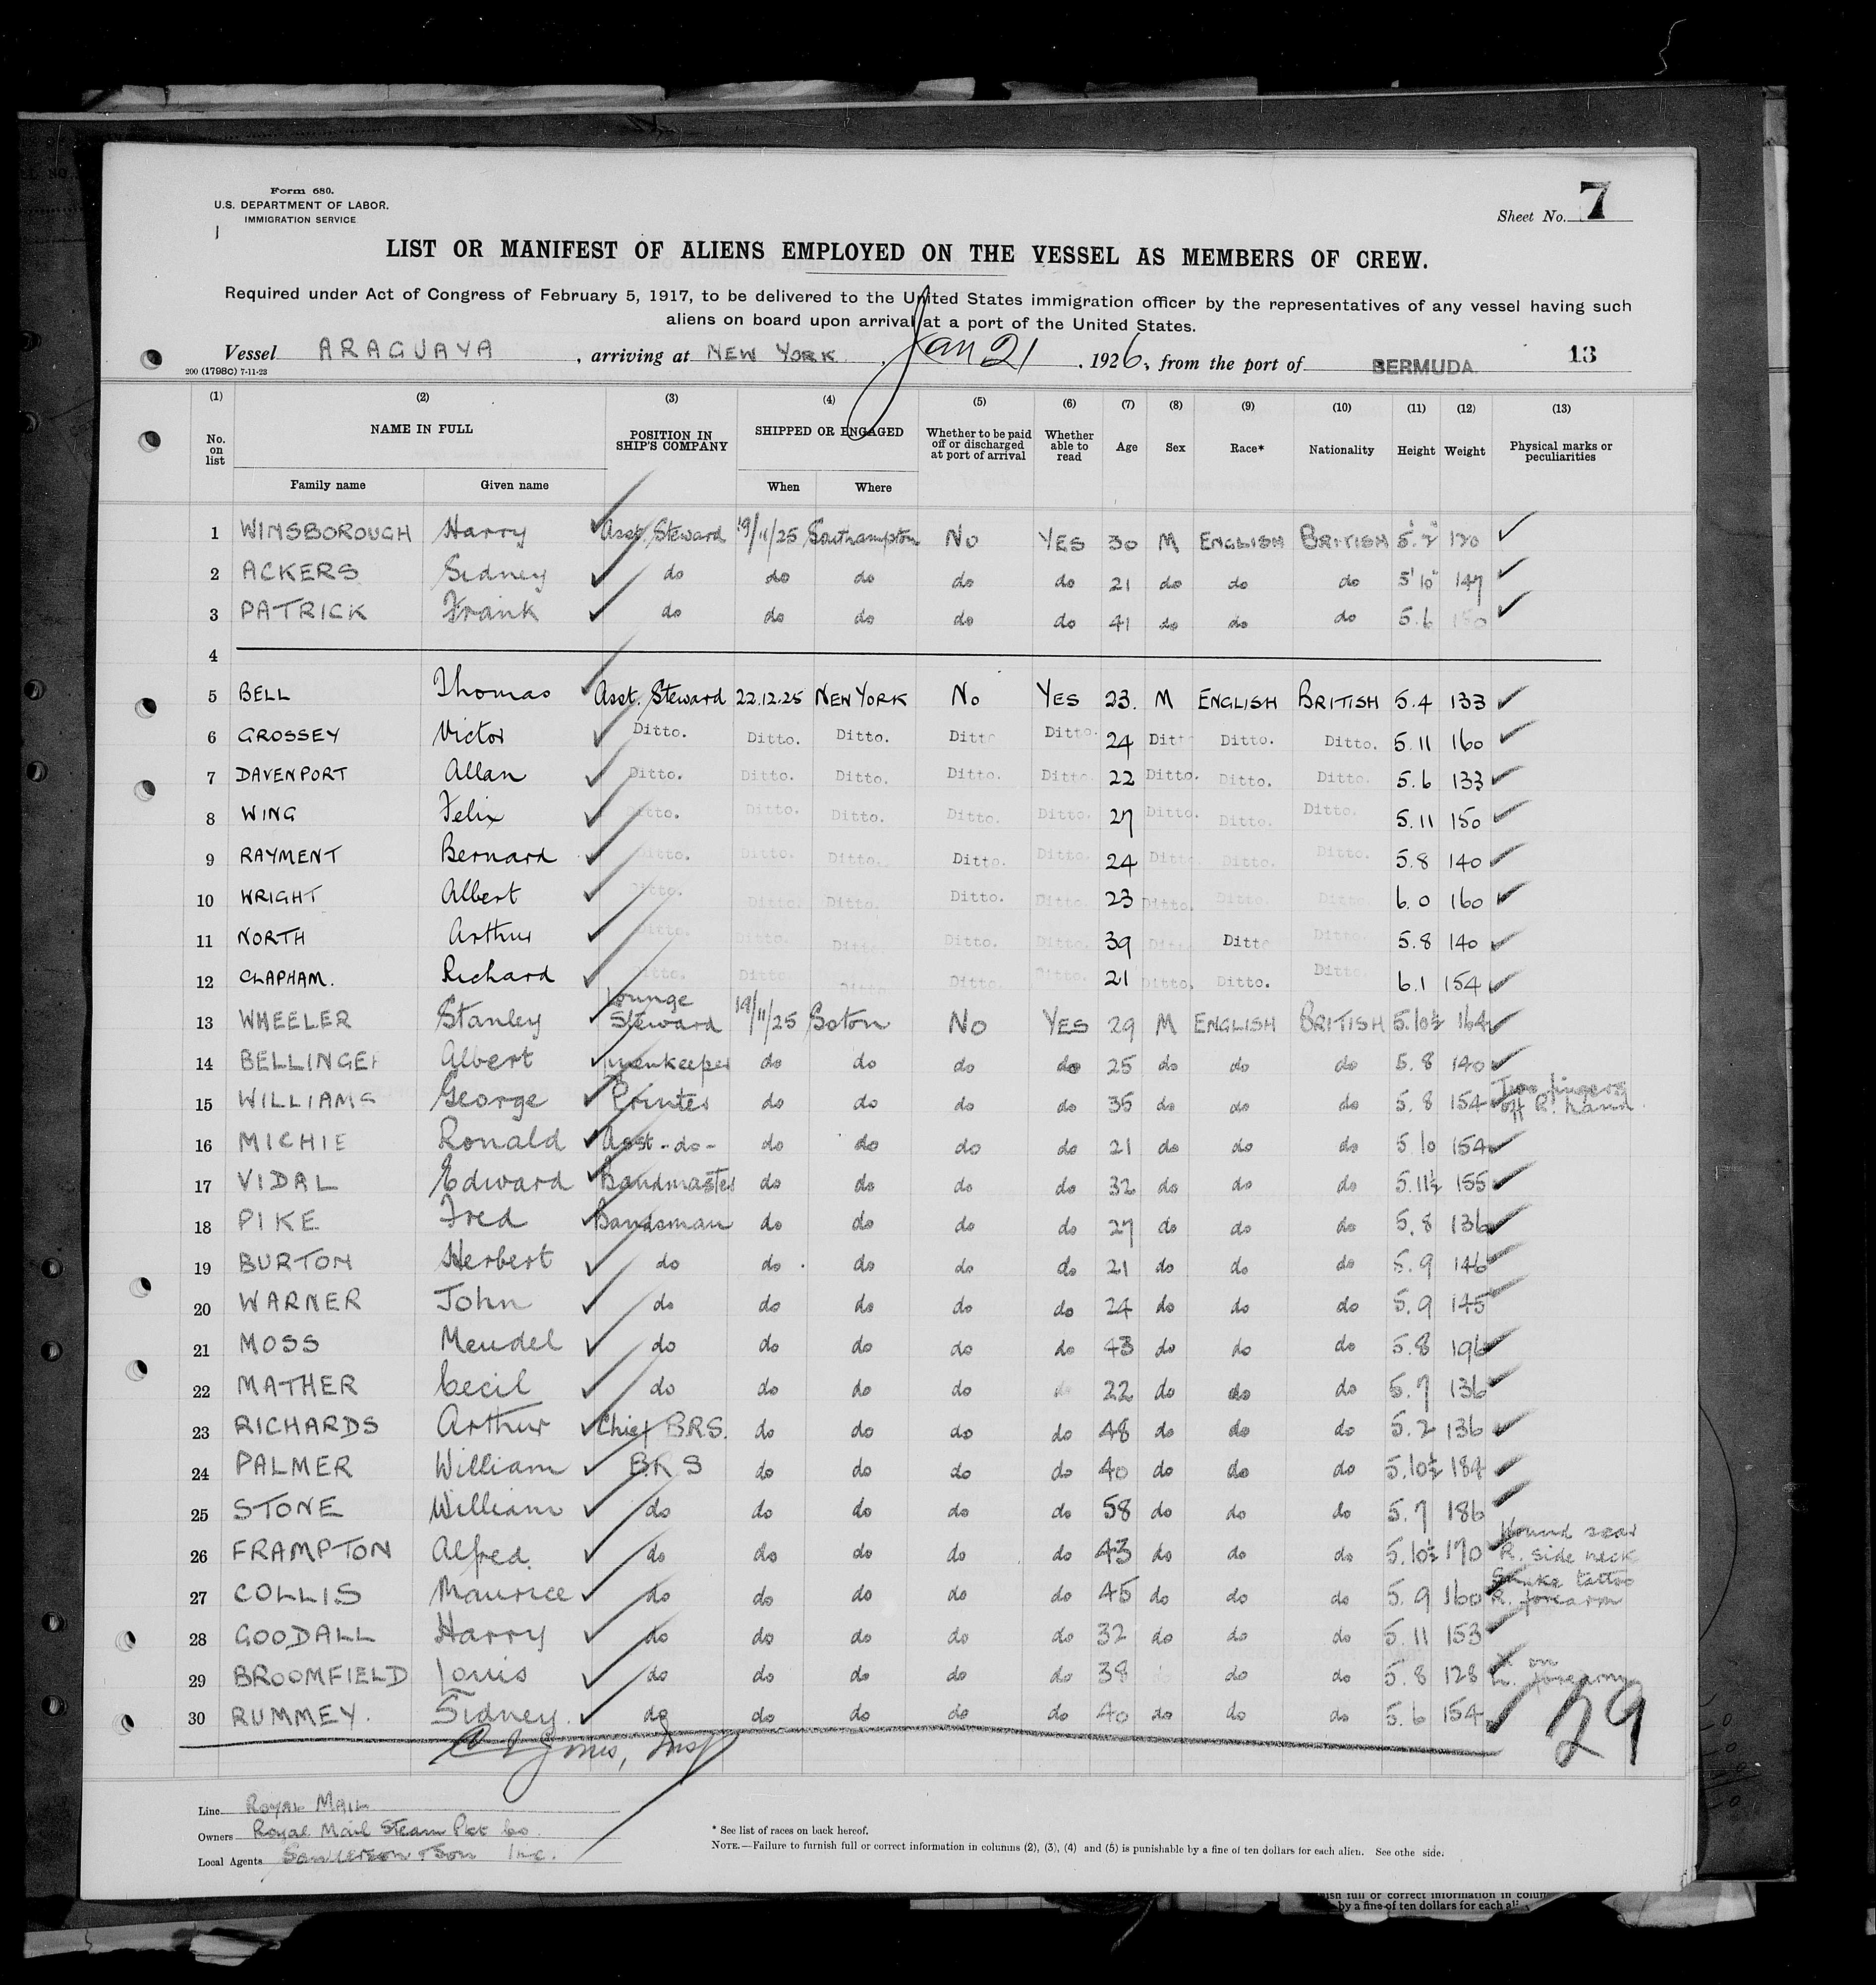 Form 680.
U.S. DEPARTMENT OF LABOR.
IMMIGRATION SERVICE
Sheet No. 7
LIST OR MANIFEST OF ALIENS EMPLOYED ON THE VESSEL AS MEMBERS OF CREW.
Required under Act of Congress of February 5, 1917, to be delivered to the United States immigration officer by the representatives of any vessel having such
aliens on board upon arrival at a port of the United States.
Vessel ARAGUAYA, arriving at NEW YORK, Jan 21, 1926, from the port of BERMUDA 13
200 (1798C) 7-11-23
(1) (2) (3) (4) (5) (6) (7) (8) (9) (10) (11) (12) (13)
No. on list NAME IN FULL POSITION IN SHIP'S COMPANY SHIPPED OR ENGAGED Whether to be paid off or discharged at port of arrival Whether able to read Age Sex Race* Nationality Height Weight Physical marks or peculiarities
Family name Given name When Where
1 WINSBOROUGH Harry Asst. Steward 19/11/25 Southampton No YES 30 M ENGLISH BRITISH 5' 2" 120
2 ACKERS Sidney do do do do do 21 do do do 5' 10" 147
3 PATRICK Frank do do do do do 41 do do do 5.6 150
4
5 BELL Thomas Asst. Steward 22.12.25 NEW YORK No YES 23. M ENGLISH BRITISH 5.4 133
6 GROSSEY Victor Ditto. Ditto. Ditto. Ditto Ditto. 24 Ditt Ditto. Ditto. 5.11 160
7 DAVENPORT Allan Ditto. Ditto. Ditto. Ditto. Ditto. 22 Ditto. Ditto. Ditto. 5.6 133
8 WING Felix Ditto. Ditto. Ditto. Ditto. Ditto. 27 Ditto. Ditto. Ditto. 5.11 150
9 RAYMENT Bernard Ditto. Ditto. Ditto. Ditto. Ditto. 24 Ditto Ditto. Ditto. 5.8 140
10 WRIGHT Albert Ditto. Ditto. Ditto. Ditto. Ditto. 23 Ditto. Ditto. Ditto. 6.0 160
11 NORTH Arthur Ditto. Ditto. Ditto. Ditto. Ditto. 39 Ditto Ditto Ditto. 5.8 140
12 CLAPHAM. Richard Ditto. Ditto. Ditto Ditto. Ditto. 21 Ditto. Ditto. Ditto 6.1 154
13 WHEELER Stanley Lounge Steward 19/11/25 Soton No YES 29 M ENGLISH BRITISH 5.10½ 164
14 BELLINGER Albert Linenkeeper do do do do 25 do do do 5.8 140
15 WILLIAMS George Printer do do do do 35 do do do 5.8 154 Two fingers off R. hand
16 MICHIE Ronald Asst -do- do do do do 21 do do do 5.10 154
17 VIDAL Edward Bandmaster do do do do 32 do do do 5.11½ 155
18 PIKE Fred Bandsman do do do do 27 do do do 5.8 136
19 BURTON Herbert do do do do do 21 do do do 5.9 146
20 WARNER John do do do do do 24 do do do 5.9 145
21 MOSS Mendel do do do do do 43 do do do 5.8 196
22 MATHER Cecil do do do do do 22 do do do 5.7 136
23 RICHARDS Arthur Chief B.R.S. do do do do 48 do do do 5.2 136
24 PALMER William BRS do do do do 40 do do do 5.10½ 184
25 STONE William do do do do do 58 do do do 5.7 186
26 FRAMPTON Alfred. do do do do do 43 do do do 5.10½ 170 Wound scar R. side neck
27 COLLIS Maurice do do do do do 45 do do do 5.9 160 Snake tattoo R. forearm
28 GOODALL Harry do do do do do 32 do do do 5.11 153
29 BROOMFIELD Louis do do do do do 38 do do 5.8 128 on forearm
30 RUMMEY. Sidney. do do do do do 40 do do do 5.6 154
29
Jones, Insp
Line Royal Mail
Owners Royal Mail Steam Pkt Co.
Local Agents Sanderson & Son Inc.
* See list of races on back hereof.
NOTE.—Failure to furnish full or correct information in columns (2), (3), (4) and (5) is punishable by a fine of ten dollars for each alien. See othe side.
by a fine of ten dollars for each